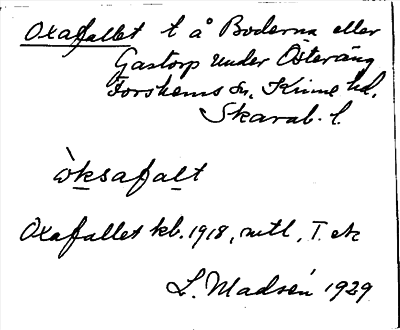 Oxafallet t å Boderna eller
Gastorp under Österäng
Forshems sn, Kinne hd,
Skarab. l.
òksafalt
Oxafallet kb. 1918, mtl, T. ek
L. Madsén 1929